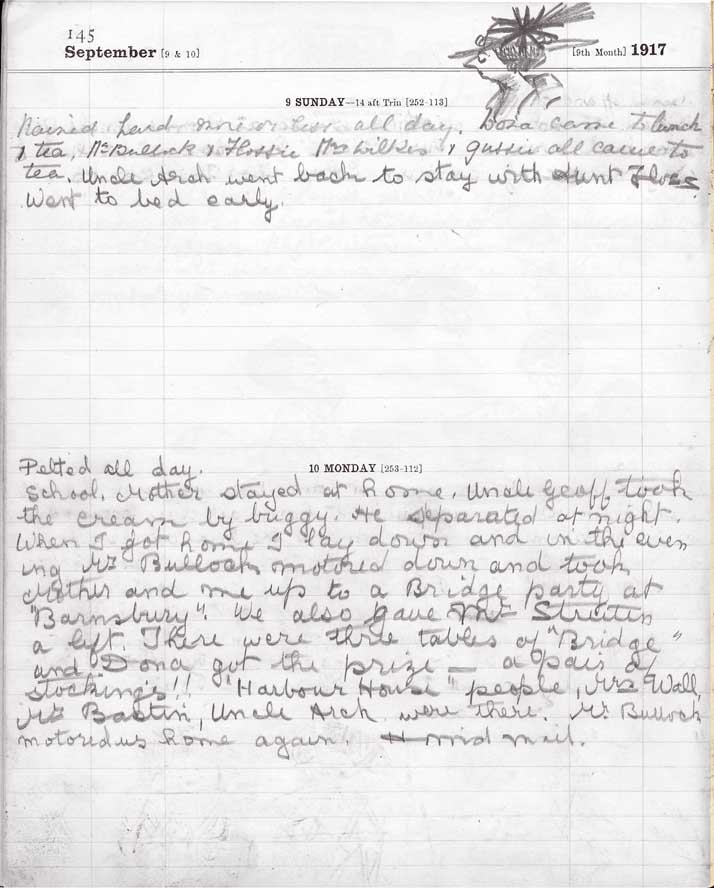 145
September [9 & 10] [9th Month] 1917
9 SUNDAY—14 aft Trin [252-113]
Rained hard more or less all day. Dora came to lunch
& tea. Mr Bullock & Flossie Mrs Wilkes & Gussie all came to
tea. Uncle Arch went back to stay with Aunt
Went to bed early.
Pelted all day.
10 MONDAY [253-112]
School. Mother stayed at home. Uncle Geoff took
the cream by buggy. He separated at night.
When I got home I lay down and in the even
ing Mr Bullock motored down and took
Mother and me up to a Bridge party at
"Barnsbury". We also gave Mr
a lift. There were three tables of "Bridge"
and Dona got the prize — a pair of
stockings!! "Harbour House" people, Mrs Wall,
Mr Bastin, Uncle Arch were there. Mr Bullock
motored us home again. mid mail.